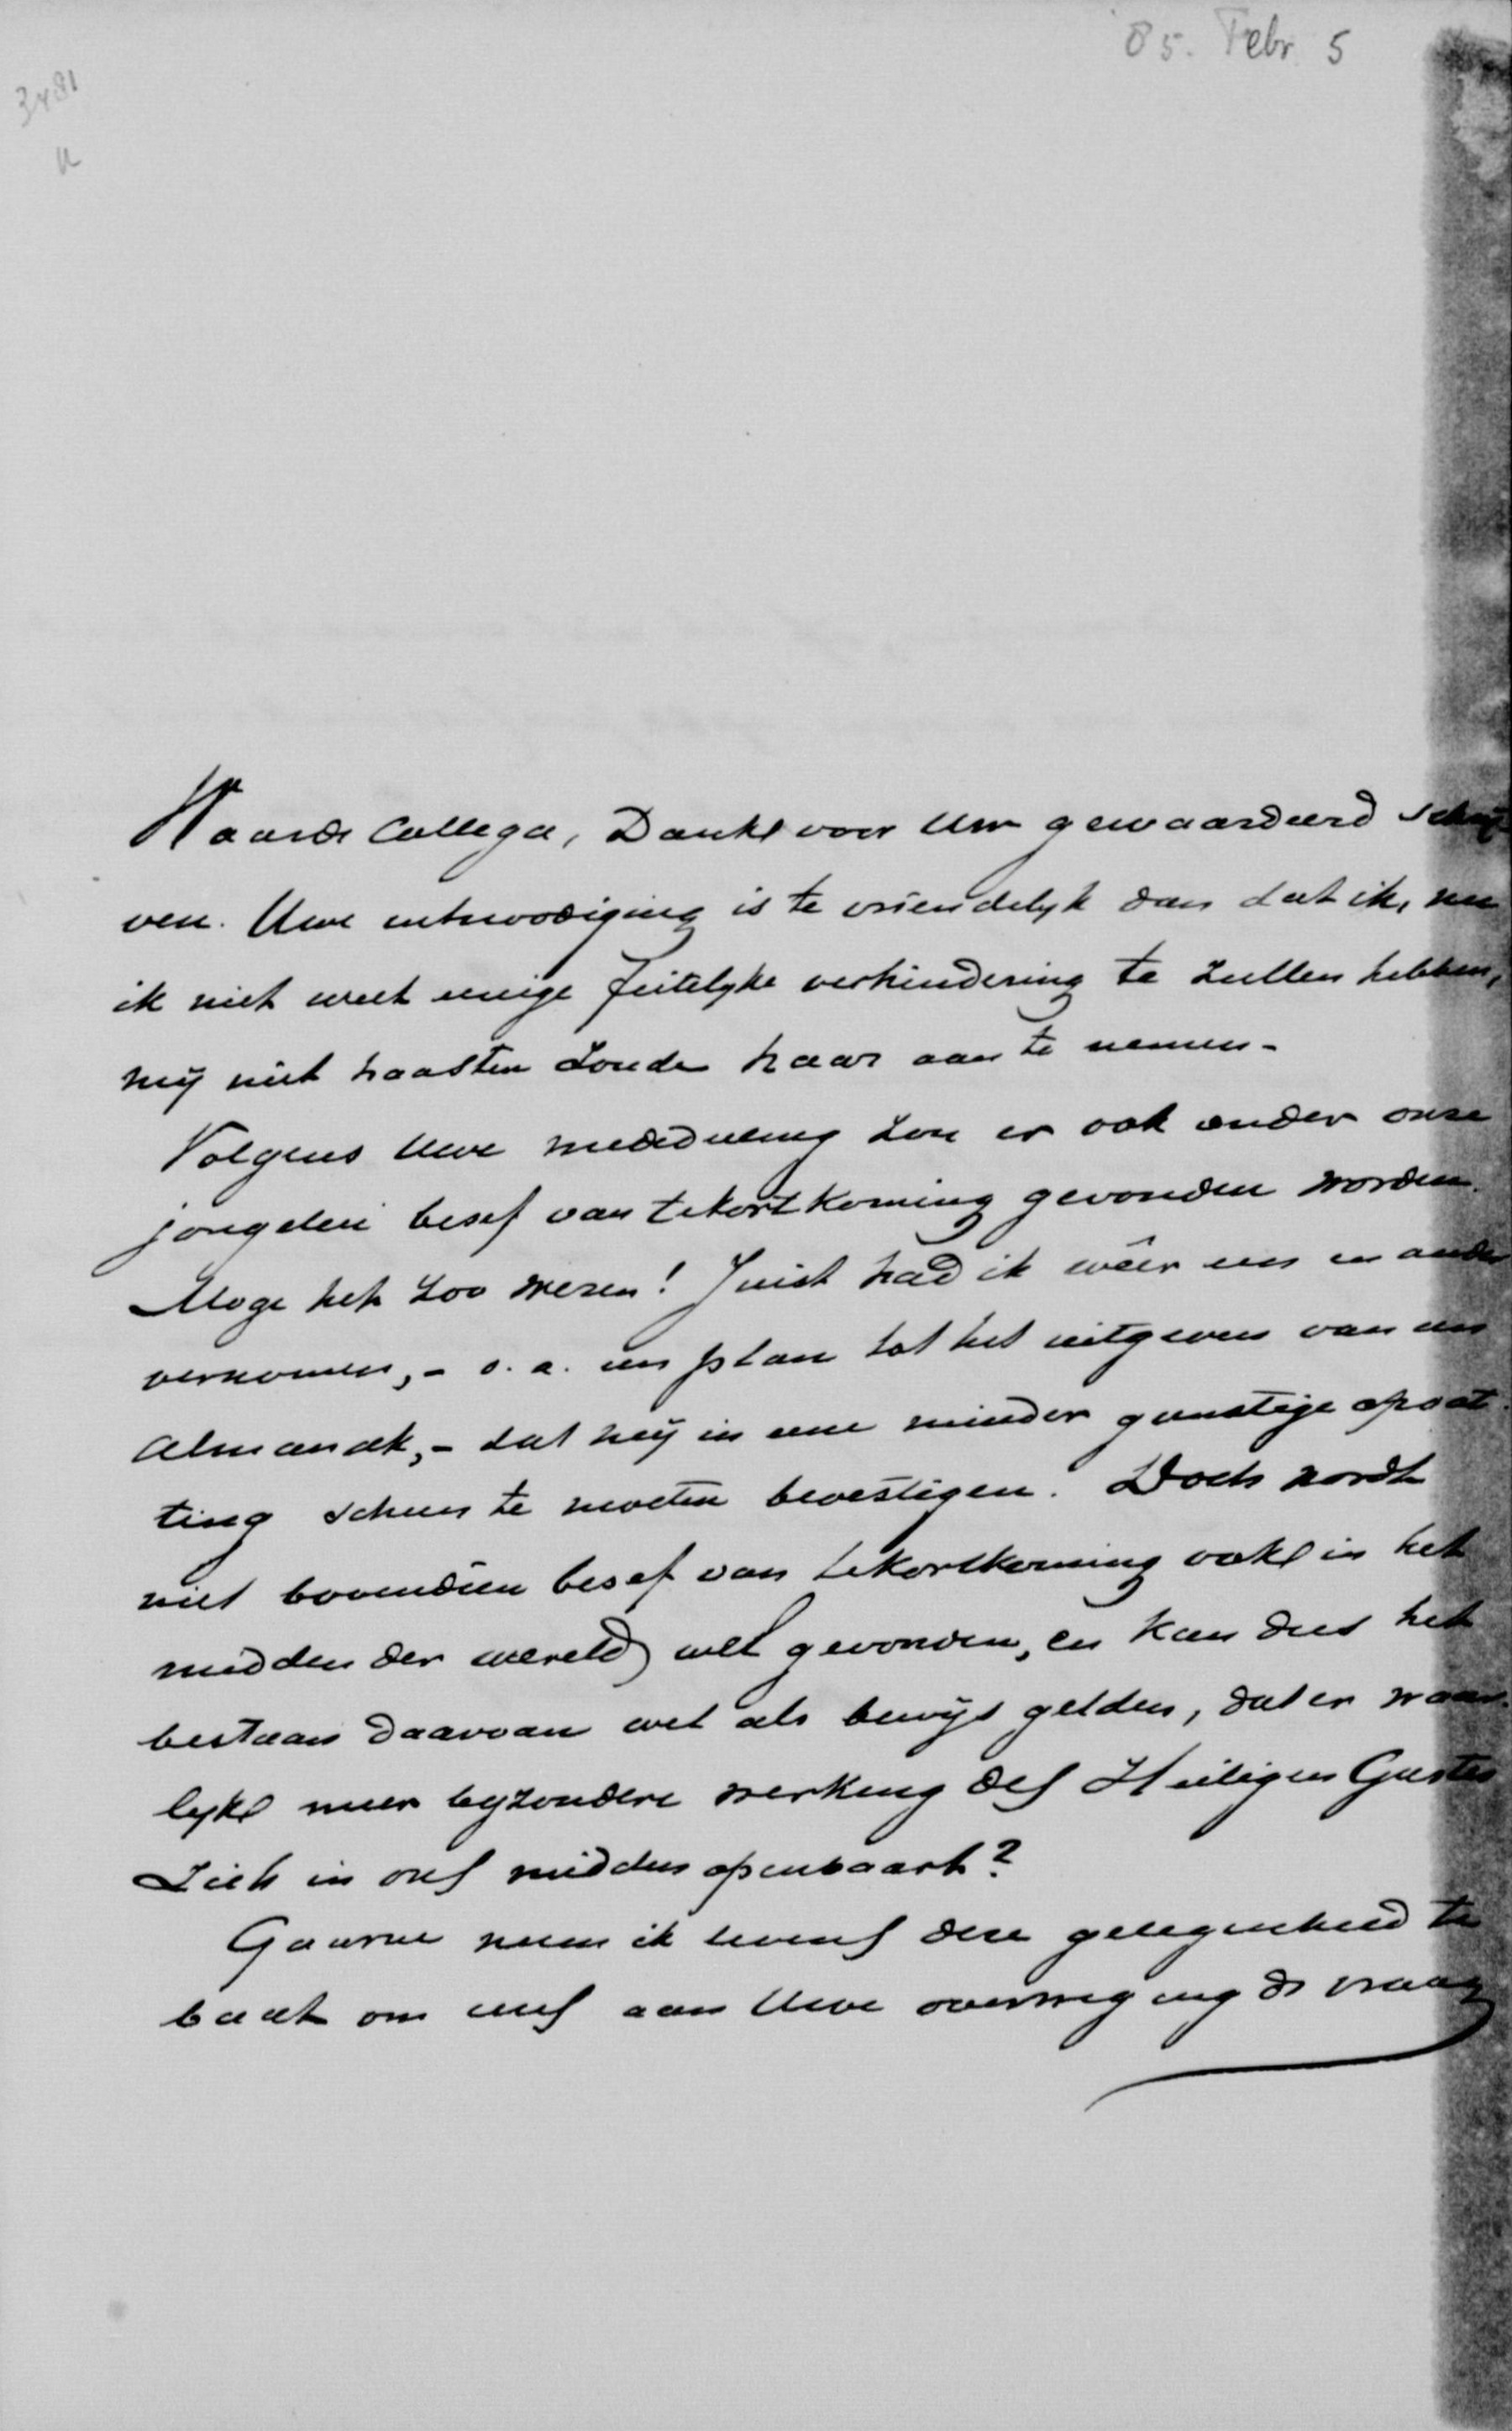 85. Febr 5
3481
a
Waarde Collega, Dank voor Uw gewaardeerd schrij
ven. Uwe uitnoodiging is te vriendelyk dan dat ik, nu
ik niet weet eenige feitelyke verhindering te zullen hebben,
my niet haasten zoude haar aan te nemen.
Volgens Uwe mededeeling zou er ook onder onze
jongelui besef van tekortkoming gevonden worden.
Moge het zoo wezen! Juist had ik wêer een en ander
vernomen, - o.a. een plan tot het uitgeven van een
Almanak, - dat my in eene minder gunstige opvat
ting scheen te moeten bevestigen. Doch wordt
niet bovendien besef van tekortkoming ook in het
midden der wereld wel gevonden, en kan dus het
bestaan daarvan wel als bewijs gelden, dat er waar
lyk meer byzondere werking des Heiligen Geestes
zich in ons midden openbaart?
Gaarne neem ik tevens deze gelegenheid te
baat om eens aan Uwe overweging de vraag